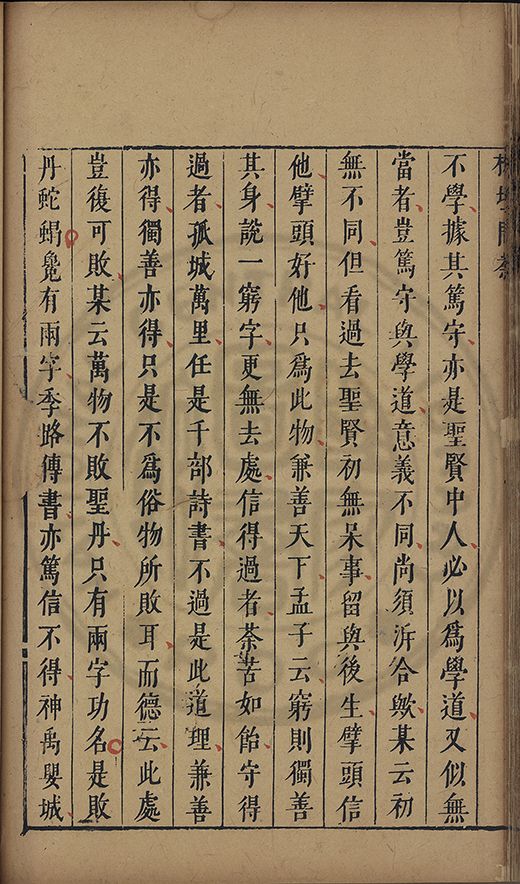 榕壇問業
不學據其篤守亦是聖賢中人必以為學道又似無
當者豈篤守與學道意義不同尚須泝合歟某云初
無不同但看過去聖賢初無呆事留與後生擘頭信
他擘頭好他只為此物兼善天下孟子云窮則獨善
其身說一窮字更無去處信得過者荼苦如飴守得
過者孤城萬里任是千部詩書不過是此道理兼善
亦得獨善亦得只是不為俗物所敗耳而德云此處
豈復可敗某云萬物不敗聖丹只有兩字功名是敗
丹蛇蝎毚有兩字季路傳書亦篤信不得神禹嬰城